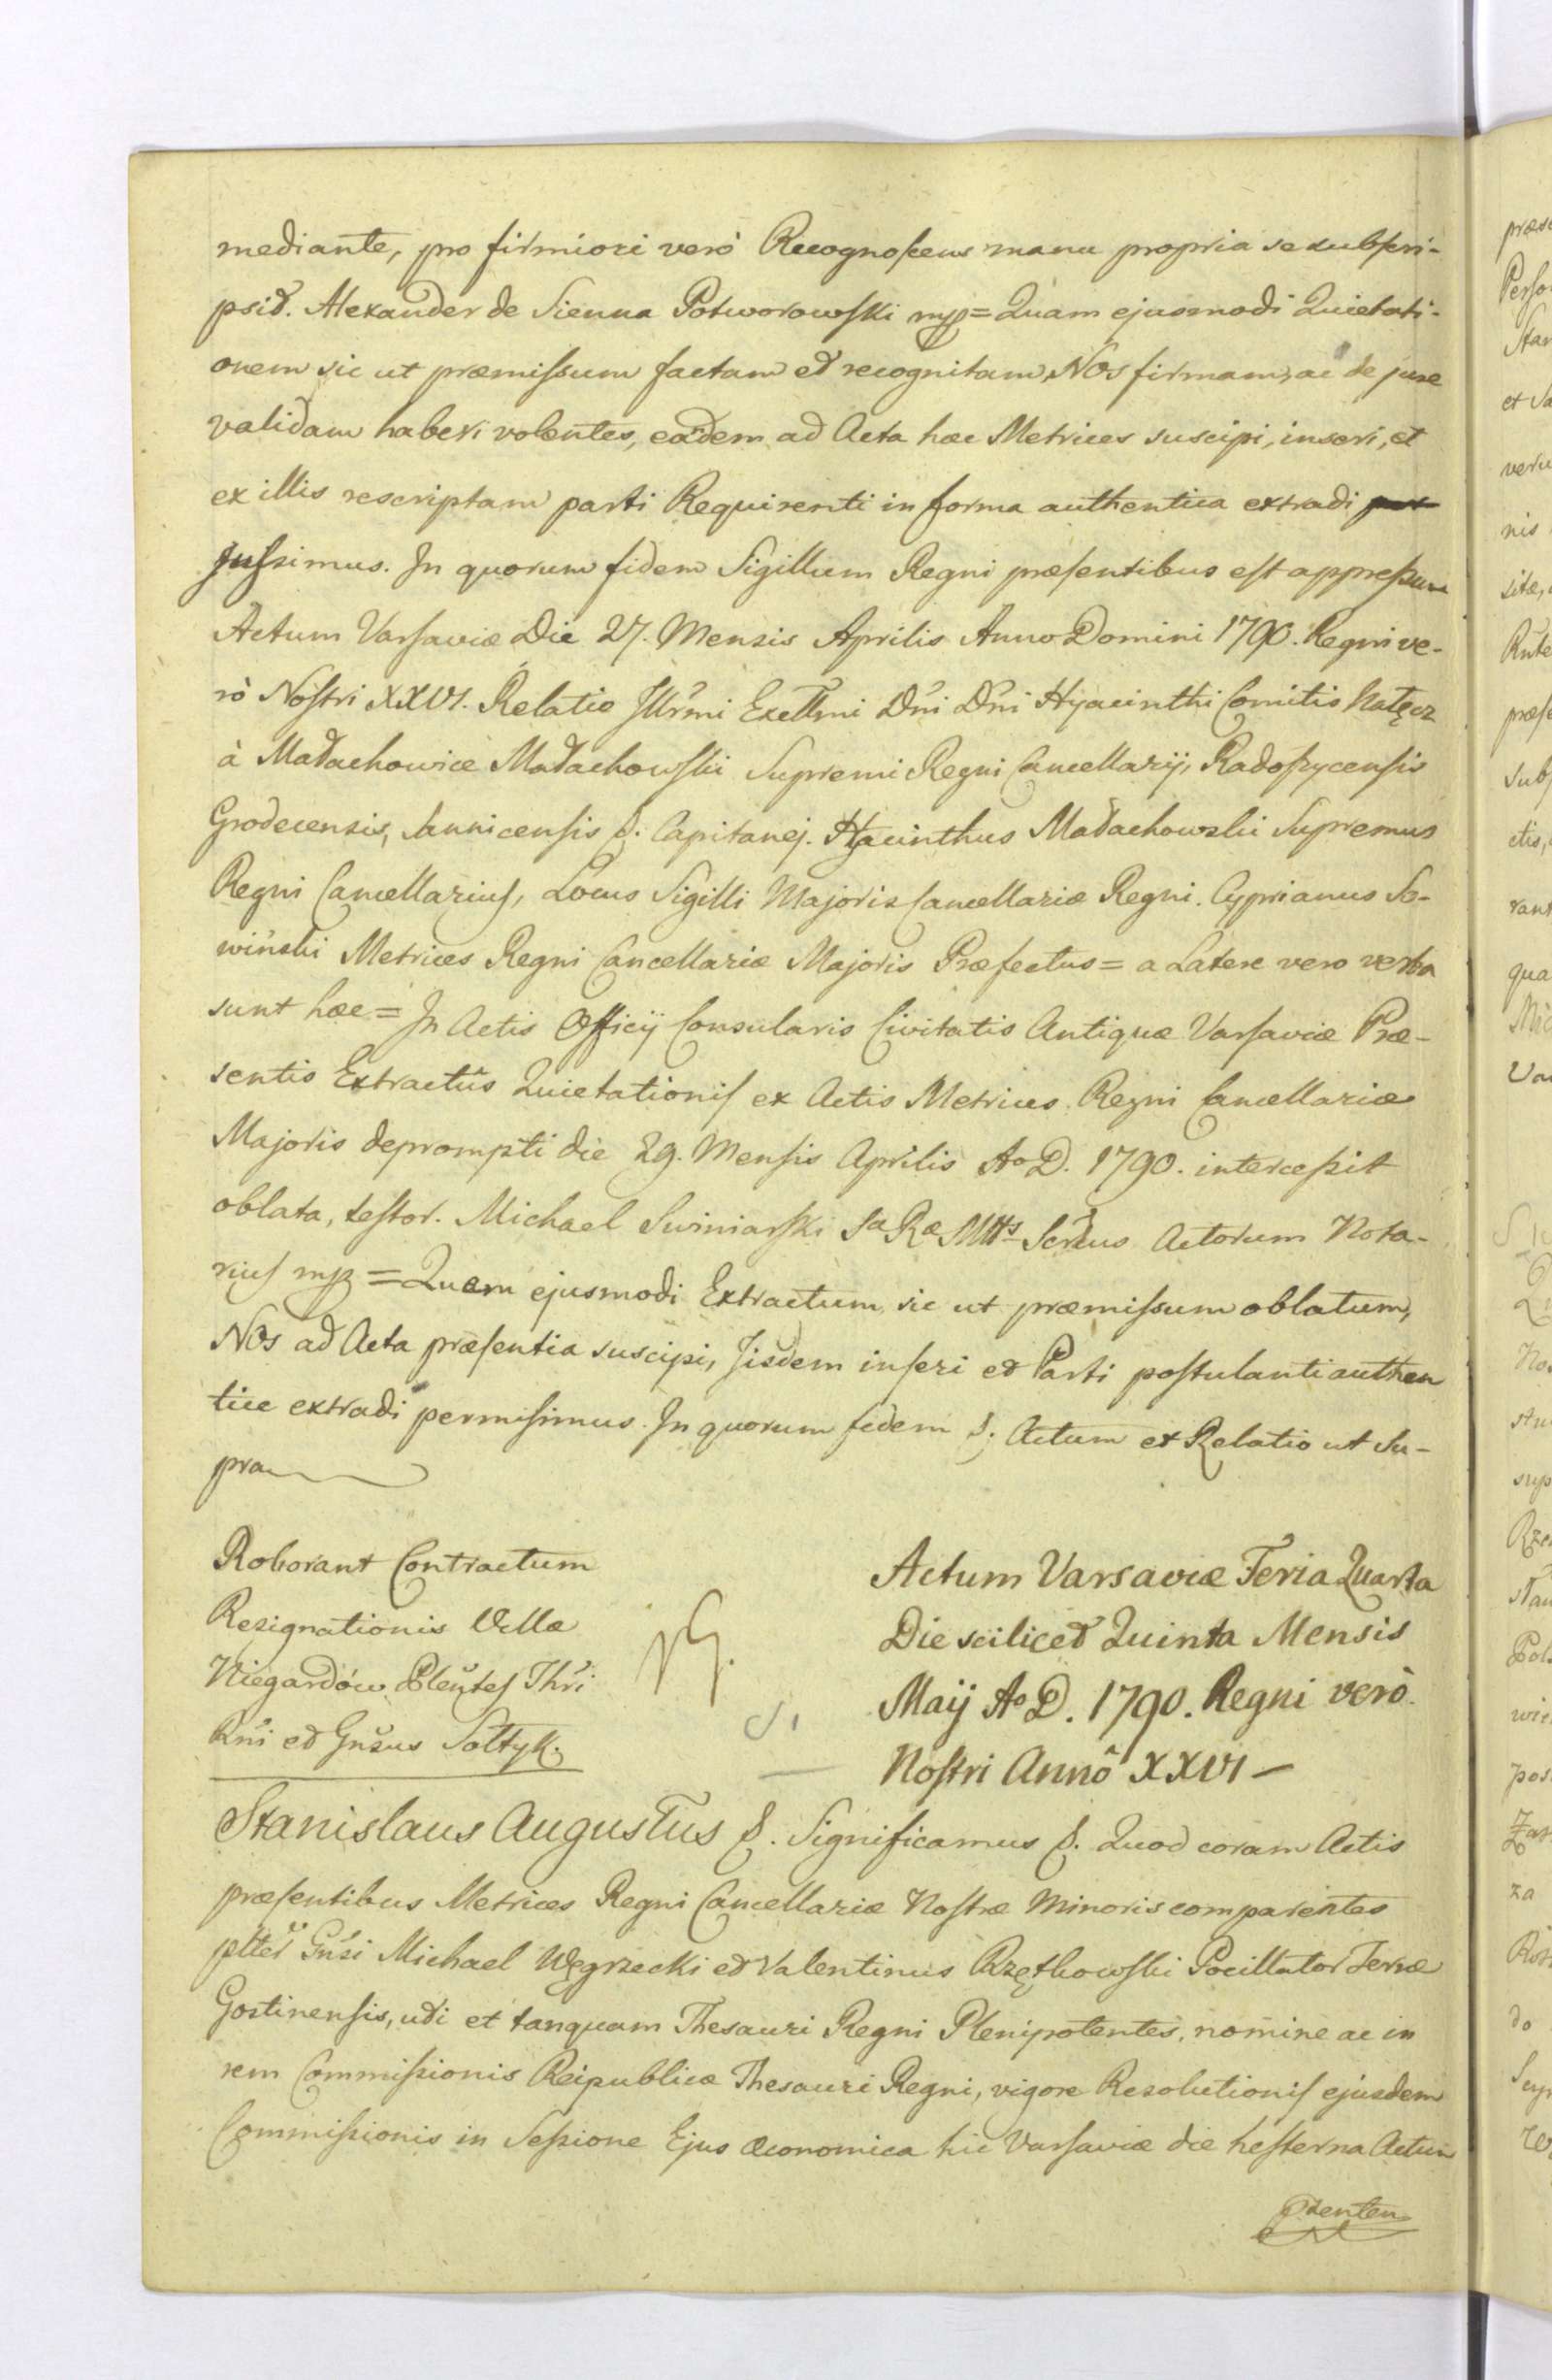 mediante, pro firmiori verò Recognoscens manu propria se subscri-
psit. Alexander de Sienna Potworowski mpp = Quam ejusmodi Quietati-
onem sic ut præmissum factam et recognitam, NOs firmam, ac de jure
validam haberi volentes, eandem ad Acta hæc Metrices suscipi, inseri, et
ex illis rescriptam parti Requirenti in forma authentica extradi
Jussimus. In quorum fidem Sigillum Regni præsentibus est appressum
Actum Varsaviæ Die 27. Mensis Aprilis Anno Domini 1790. Regni ve-
rò Nostri XXVI. Relatio Jllrmi Excellmi Dñi Dñi Hyacinthi Comitis Nałęcz
à Małachowice Małachowski Supremi Regni Cancellarij, Radoszycensis
Grodecensis, Sannicensis &. Capitanej. Hyacinthus Małachowski Supremus
Regni Cancellarius, Locus Sigilli Majoris Cancellariæ Regni. Cyprianus So-
wiński Metrices Regni Cancellariæ Majoris Præfectus = a Latere vero verba
sunt hæc = In Actis Officij Consularis Civitatis Antiquæ Varsaviæ Præ-
sentis Extractûs Quietationis ex Actis Metrices Regni Cancellariæ
Majoris deprompti die 29. Mensis Aprilis Ao D. 1790. intercessit
oblata, testor. Michael Swiniarski Sa Ræ Mtts Scrius Actorum Nota-
rius mpp = Quem ejusmodi Extractum, sic ut præmissum oblatum,
NOs ad Acta præsentia suscipi, Jisdem inseri et Parti postulanti authen
tice extradi permisimus. In quorum fidem &. Actum et Relatio ut Su-
pra
Roborant Contractum
Resignationis Villæ
Niegardów Pleñtes Thři
Rñi et Gñsus Sołtyk.
Actum Varsaviæ Feria Quarta
Die scilicet Quinta Mensis
Maij Ao D. 1790. Regni verò
Nostri Annô XXVI —
Stanislaus Augustus &. Significamus &. Quod coram Actis
præsentibus Metrices Regni Cancellariæ Nostræ Minoris comparentes
plter Gñsi Michael Węgrzecki et Valentinus Rzętkowski Pocillator Terræ
Gostinensis, uti et tanquam Thesauri Regni Plenipotentes, nomine ac in
rem Commissionis Reipublicæ Thesauri Regni, vigore Resolutionis ejusdem
Commissionis in Sessione Ejus Œconomica hic Varsaviæ die hesterna Actum